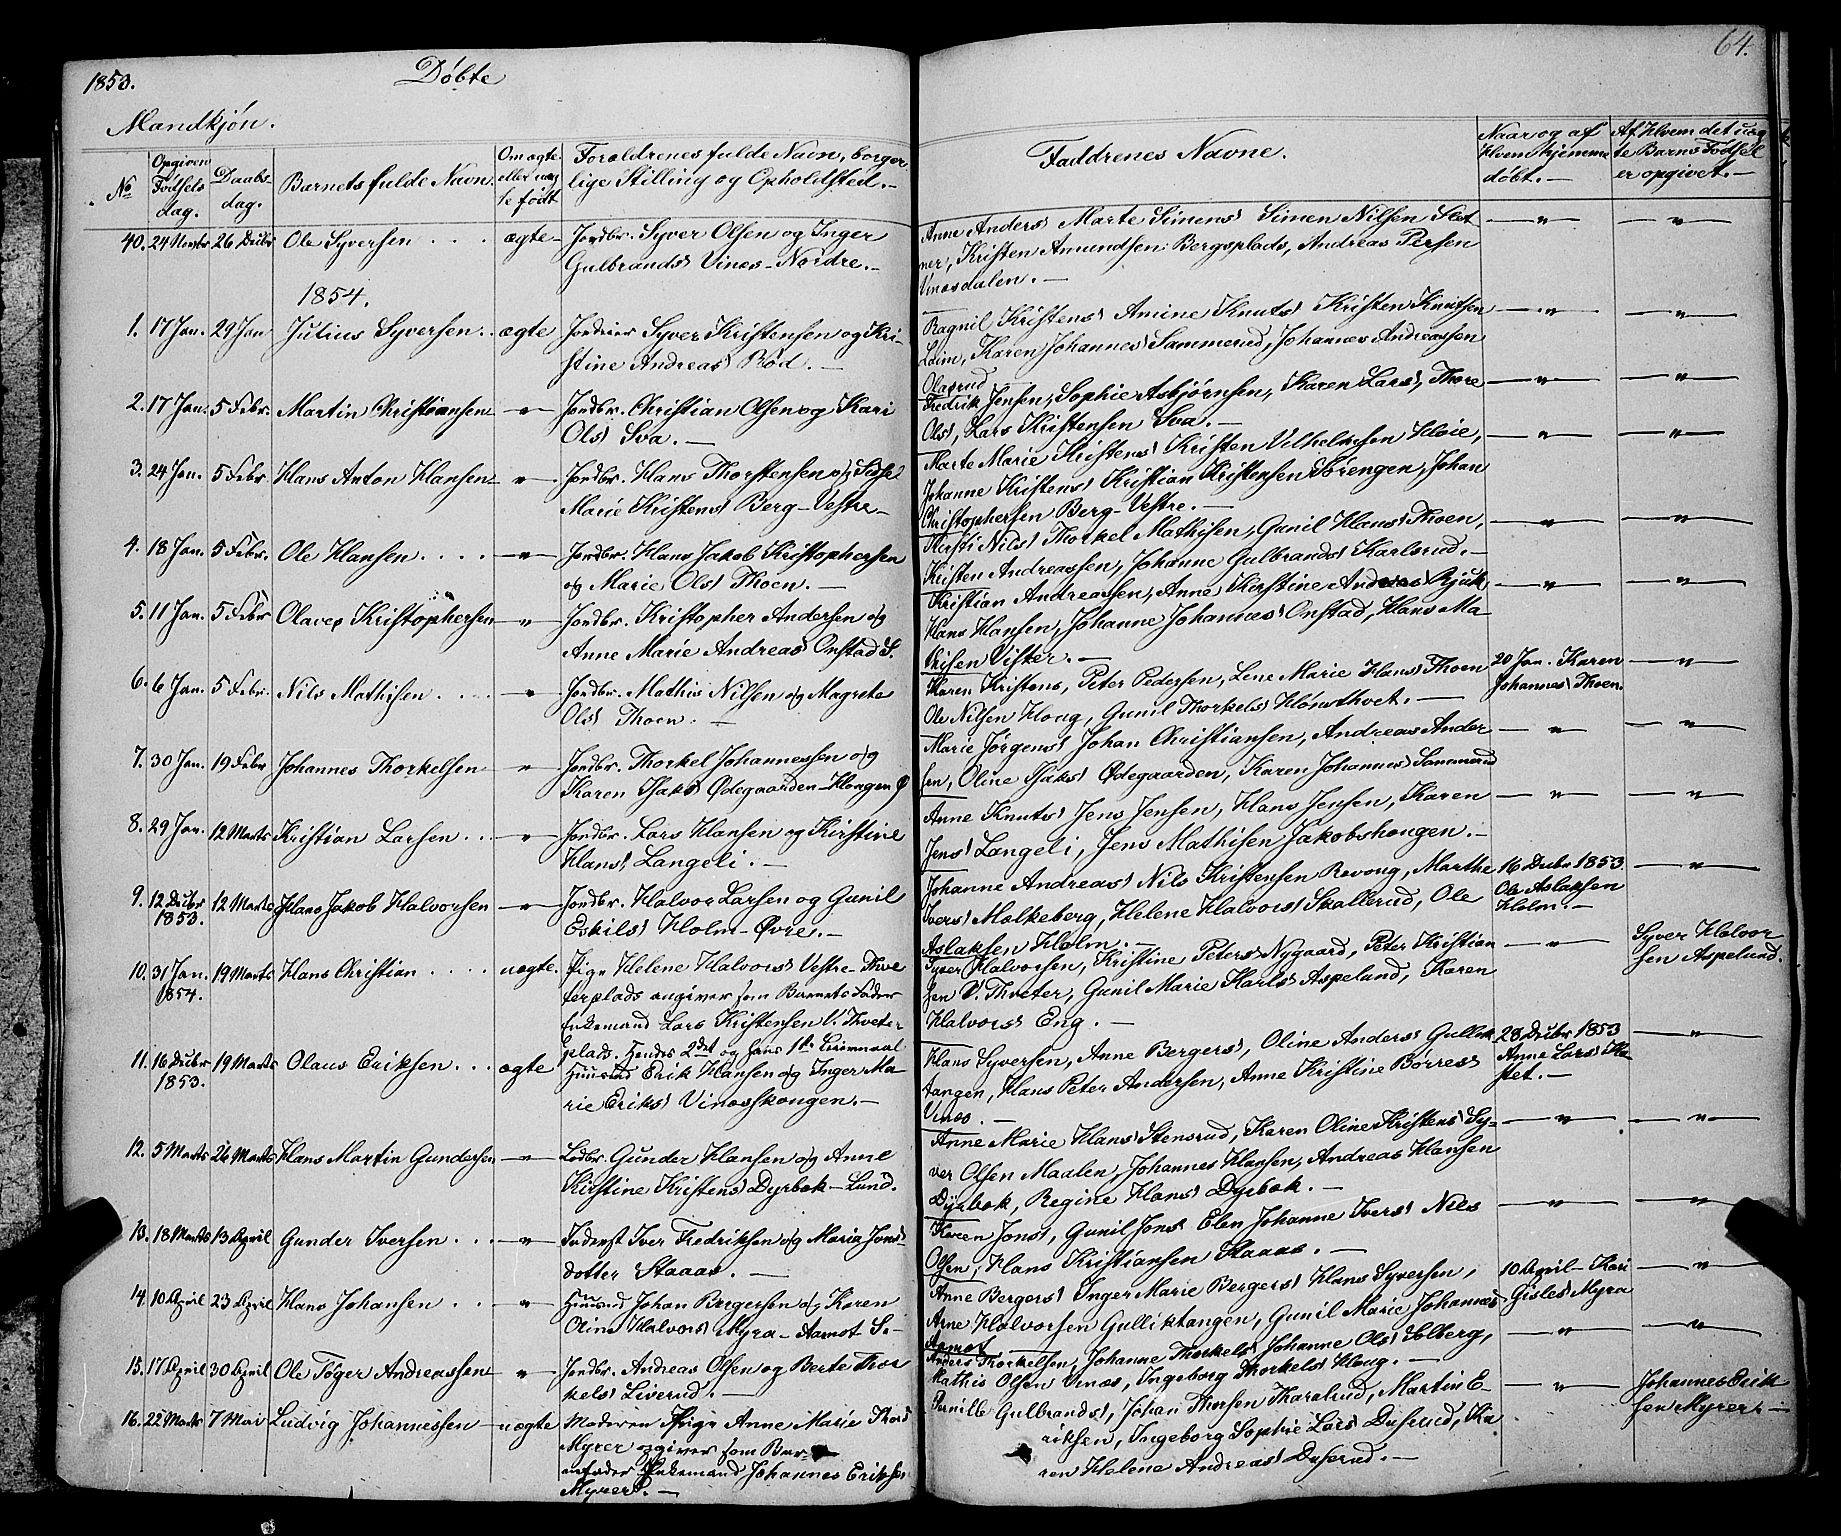 1853.
Døbte
64.
Mandkjøn.
No
Opgiven Fødsels dag.
Daabs-dag.
Barnets fulde Navn.
Om ægte eller uægte født
Forældrenes fulde Navn, borgerlige Stilling og Opholdsted.-
Faddrenes Navne.
Naar og af Hvem hjemme døbt.-
Af Hvem det uægte Barns Fødsel er opgivet.-
40. 24 Novbr 26 Decbr Ole Syversen . . . ægte- Jordbr. Syver Olsen og Inger
Gulbrands Vines-Nordre.-
Anne Anders Marte Simens Simen Nilsen Slet
ner, Kristen Amundsen Bergsplads, Andreas Persen
Vinesdalen.-
1854.
1. 17 Jan. 29 Jan Julius Syversen . . ægte Jordeier Syver Kristensen og Kri-
stine Andreas Rød.-
Ragnil Kristens Amine Knuts Kristen Knutsen
Leim, Karen Johannes Sammerud, Johannes Andreassen
Olasrud
2. 17 Jan. 5 Febr. Martin Christiansen -"- Jordbr. Christian Olsen og Kari
Ols Sva.-
Fredrik Jensen, Sophie Asbjørnsen, Karen Lars, Thore
Ols, Lars Kristensen Sva.-
3. 24 Jan. 5 Febr. Hans Anton Hansen -"- Jordbr. Hans Thorstensen og
Marie Kristens Berg-Vestre-
Marte Marie Kristens Kristen Vilhelmsen Høie,
Johanne Kristens Kristian Kristensen Sørengen, Johan
Christophersen Berg-Vestre.-
4. 18 Jan. 5 Febr. Ole Hansen . . . . -"- Jordbr. Hans Jakob Kristophersen
og Marie Ols Thoen.-
Kirsti Nils Thorkel Mathisen, Gunil Hans Thoen,
Kristen Andreassen, Johanne Gulbrands Karlsrud.-
5. 11 Jan. 5 Febr Olaves Kristophersen -"- Jordbr. Kristopher Andersen og
Anne Marie Andreas Onstad S.
Kristian Andreassen, Anne Kirstine Andreas Rjuk,
Hans Hansen, Johanne Johannes Onstad, Hans Ma-
thisen Vister.-
6. 6 Jan. 5 Febr. Nils Mathisen . . . -"- Jordbr. Mathis Nilsen og Magrete
Ols Thoen.-
Karen Kristens, Peter Pedersen, Lene Marie Hans Thoen
Ole Nilsen Houg, Gunil Thorkels Hønsthvet.-
20 Jan. Karen
Johannes Thoen.
7. 30 Jan. 19 Febr Johannes Thorkelsen -"- Jordbr. Thorkel Johannessen og
Karen Isaks Ødegaarden-Hougen Ø
Marie Jørgens Johan Christiansen, Andreas Ander
sen, Oline Isaks Ødegaarden, Karen Johannes Sammerud
8. 29 Jan. 12 Marts Kristian Larsen . . . -"- Jordbr. Lars Hansen og Kirstine
Hans Langeli.-
Anne Knuts Jens Jensen, Hans Jensen, Karen
Jens Langeli, Jens Mathisen Jakobshougen.-
9. 12 Decbr 1853. 12 Marts Hans Jakob Halvorsen -"- Jordbr. Halvor Larsen og Gunil
Eskils Holm-Øvre.-
Johanne Andreas Nils Kristensen Revoug, Marthe
Ivers Molkeberg, Helene Halvors Skallerud, Ole
Aslaksen Holm.-
16 Decbr 1853
Ole Aslaksen
Holm.-
10. 31 Jan. 1854. 19 Marts Hans Christian . . . . uægte. Pige Helene Halvors Vestre-Thve
terplads angiver som Barnets Fader
Enkemand Lars Kristensen V. Thveter
plads. Hendes 2det og hans 1ste Leiermaal
Syver Halvorsen, Kristine Peters Nygaard, Peter Kristian
sen V. Thveter, Gunil Marie Karls Aspelund, Karen
Halvors Eng.-
Syver Halvor
sen Aspelund.
11. 16 Decbr 1853. 19 Marts Olaus Eriksen . . . ægte Huusmd Erik Hansen og Inger Ma
rie Eriks Vinesskougen.-
Hans Syversen, Anne Bergers, Oline Anders Gullik
tangen, Hans Peter Andersen, Anne Kristine Børres
Vines.-
28 Decbr 1853
Anne Lars
stet.-
12. 5 Marts 26 Marts Hans Martin Gundersen -"- Ledbr. Gunder Hansen og Anne
Kirstine Kristens Dyrbek-Lund.
Anne Marie Hans Stensrud, Karen Oline Kristens Sy-
ver Olsen Maalen, Johannes Hansen, Andreas Hansen
Dyrbek, Regine Hans Dyrbek.-
13. 18 Marts 13 April Gunder Iversen . . . -"- Inderst Iver Fredriksen og Maria Jons
dotter Staaas.-
Karen Jons, Gunil Jons Elen Johanne Ivers Nils
Olsen, Hans Kristiansen Staaas.-
14. 10 April 23 April Hans Johansen . . -"- Huusmd Johan Bergersen og Karen
Oline Halvors Myra-Aamot S.-
Anne Bergers Inger Marie Bergers Hans Syversen,
Arne Halvorsen Gulliktangen, Gunil Marie Johannes
Aamot
10 April-Kari
Gisles Myra
15. 17 April 30 April Ole Tøger Andreassen -"- Jordbr. Andreas Olsen og Berte Thor
kels Liverud.-
Anders Thorkelsen, Johanne Thorkels Johanne Ols Solberg,
Mathis Olsen Vines, Ingeborg Thorkels Houg.-
16. 22 Marts 7 Mai Ludvig Johannessen uægte Moderen Pige Anne Marie Thord
Myrer opgiver som Bar-
nefader Enkemand Johannes Eriksen
Myrer.-
Pernille Gulbrands, Johan Thorsen Tharalrud, Martin E-
riksen, Ingeborg Sophie Lars Duserud, Ka
ren Helene Andreas Duserud.-
Johannes Erik
sen Myrer.-